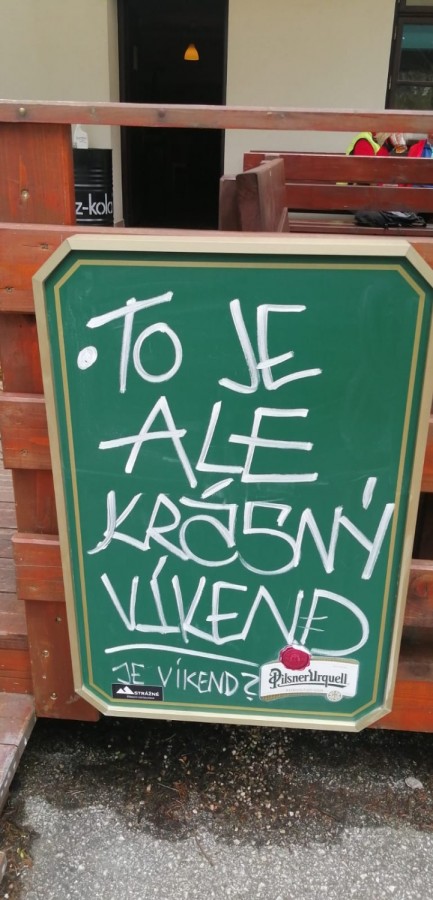 z-kola
• TO JE
ALE
KRÁSNÝ
VÍKEND
JE VÍKEND?
STRÁŽNÉ
Pilsner Urquell